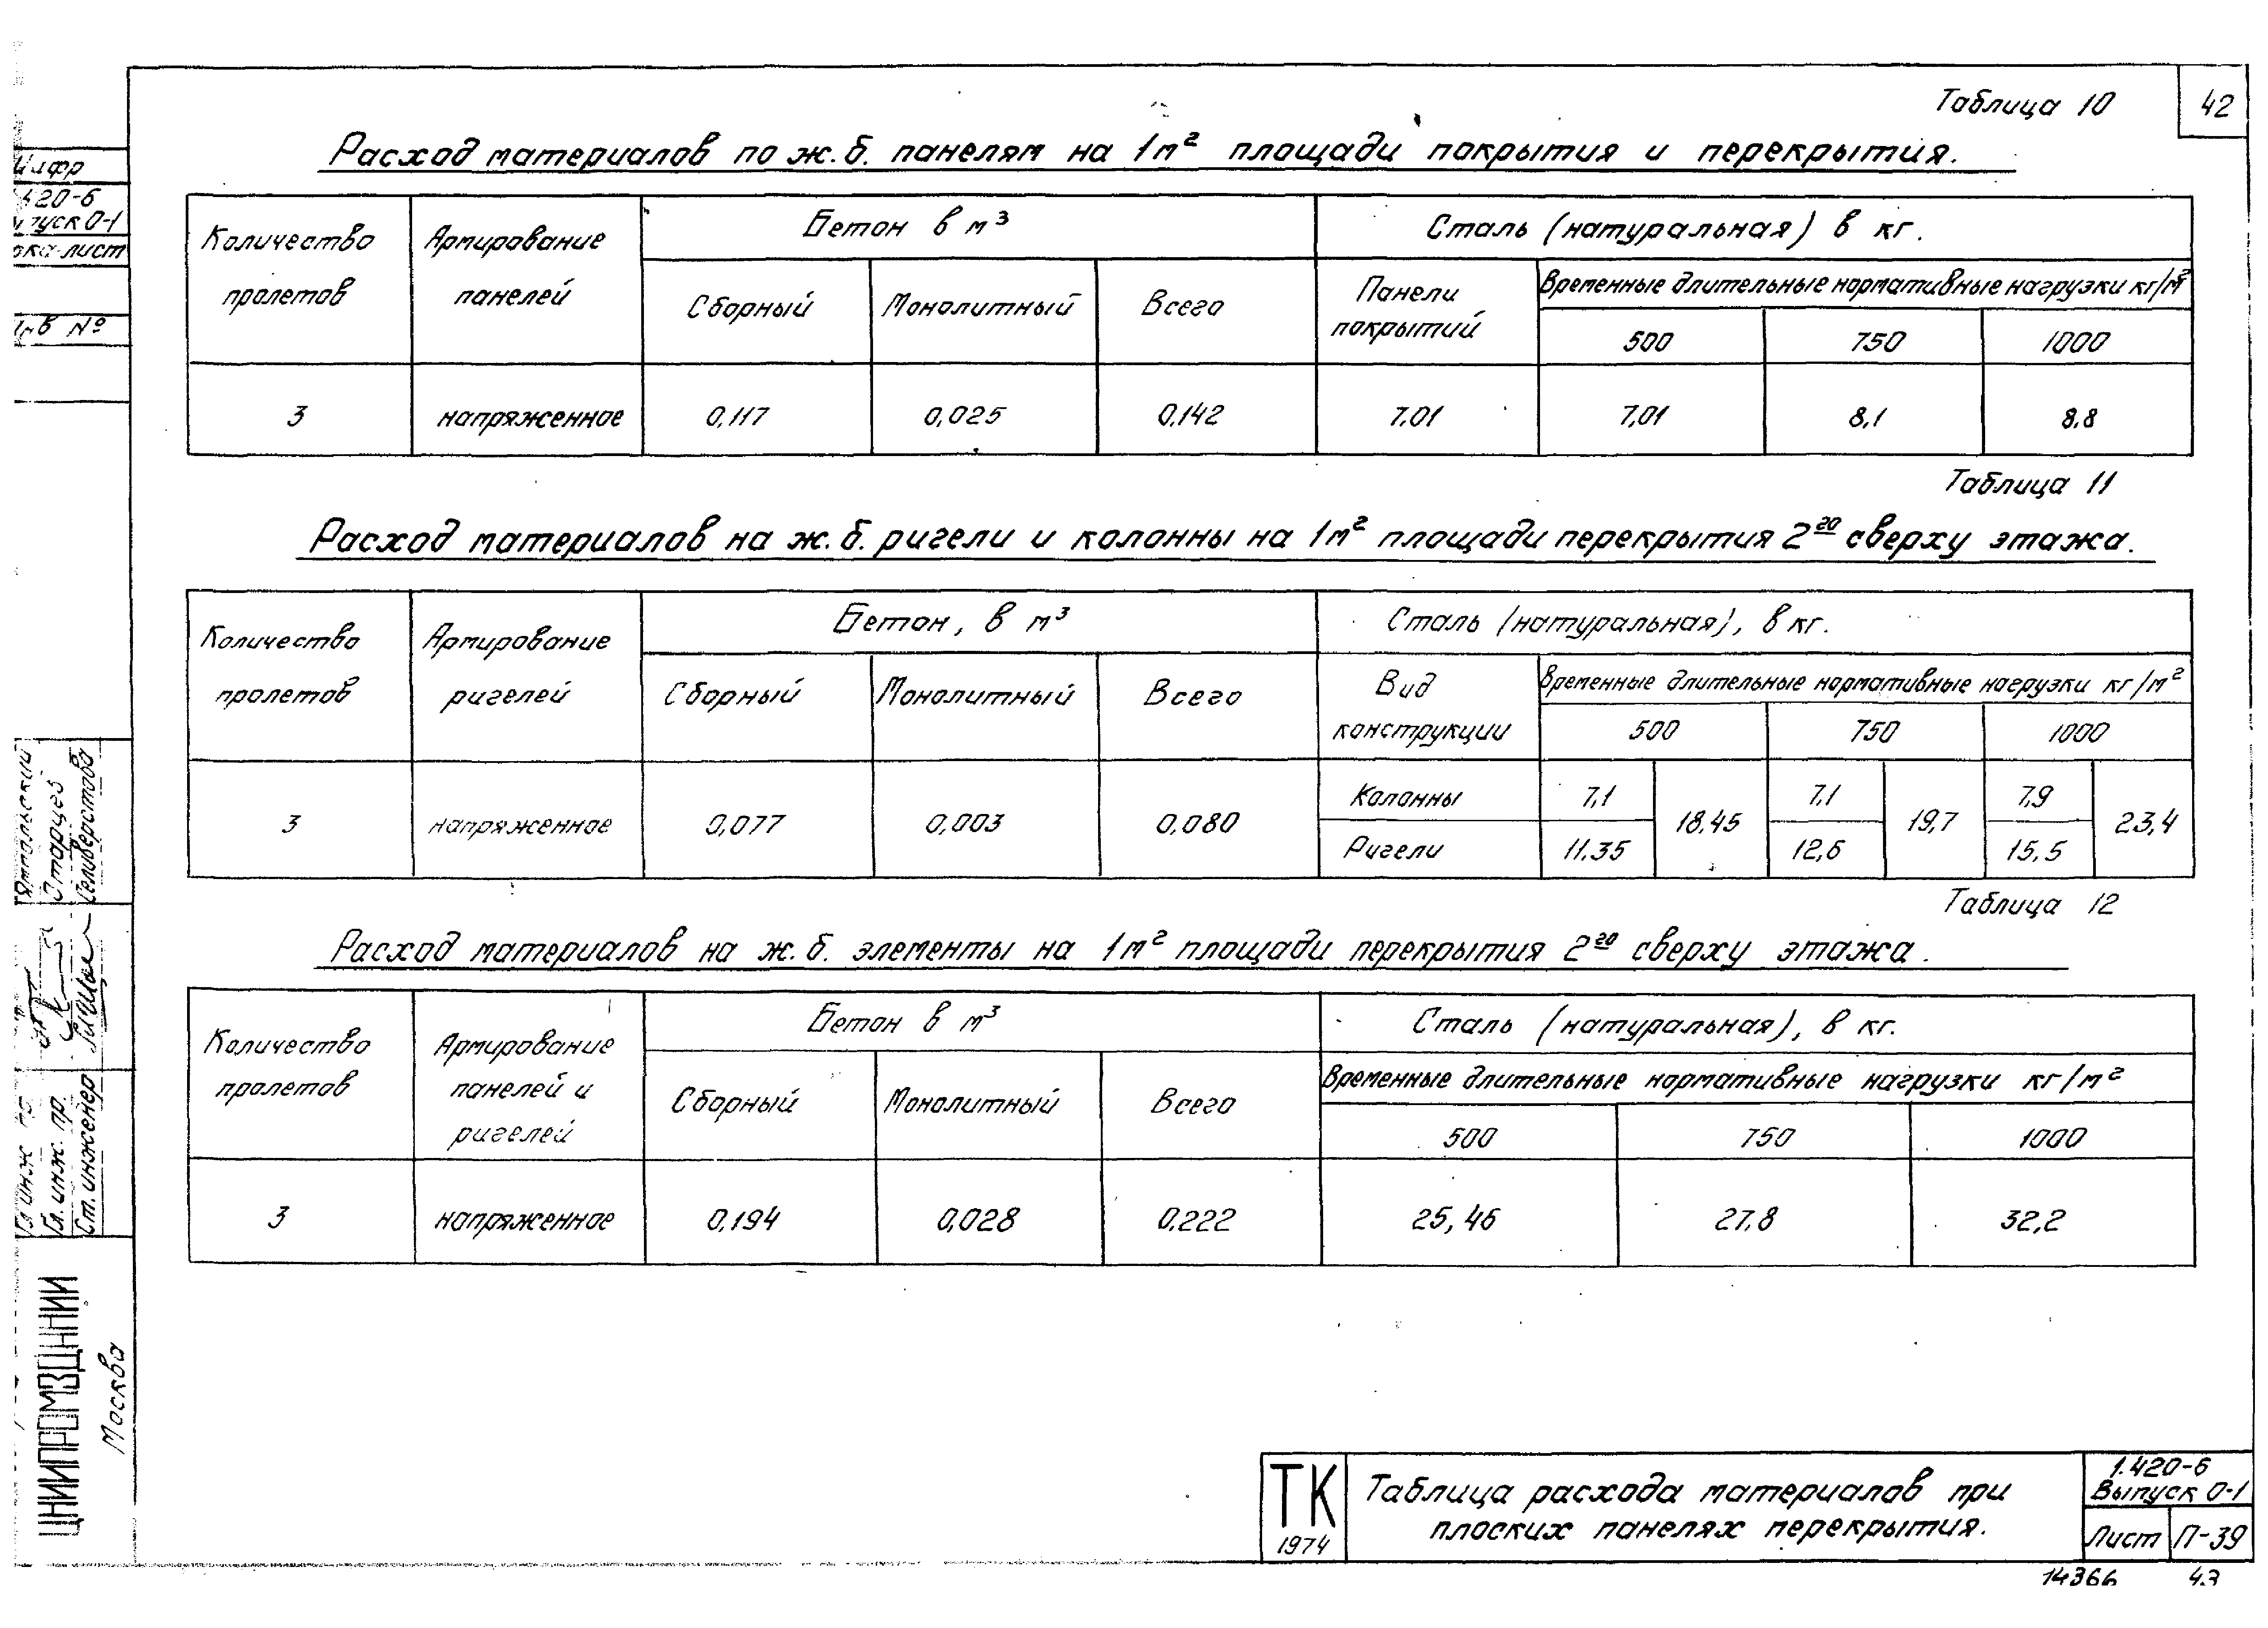 Таблица 10
42
Расход материалов по ж.б. панелям на 1м² площади покрытия и перекрытия.
Количество пролетов
Армирование панелей
Бетон в м³
Сталь (натуральная) в кг.
Сборный
Монолитный
Всего
Панели покрытий
Временные длительные нормативные нагрузки кг/м²
500
750
1000
3
напряженное
0,117
0,025
0,142
7,01
7,01
8,1
8,8
Таблица 11
Расход материалов на ж.б. ригели и колонны на 1м² площади перекрытия 2го сверху этажа.
Количество пролетов
Армирование ригелей
Бетон, в м³
Сталь (натуральная), в кг.
Сборный
Монолитный
Всего
Вид конструкции
Временные длительные нормативные нагрузки кг/м²
500
750
1000
3
напряженное
0,077
0,003
0,080
Колонны
7,1
18,45
7,1
19,7
7,9
23,4
Ригели
11,35
12,6
15,5
Таблица 12
Расход материалов на ж.б. элементы на 1м² площади перекрытия 2го сверху этажа.
Количество пролетов
Армирование панелей и ригелей
Бетон в м³
Сталь (натуральная), в кг.
Сборный
Монолитный
Всего
Временные длительные нормативные нагрузки кг/м²
500
750
1000
3
напряженное
0,194
0,028
0,222
25,46
27,8
32,2
ТК
1974
Таблица расхода материалов при
плоских панелях перекрытия.
1.420-6
Выпуск 0-1
Лист
П-39
14366
43
Шифр
420-6
пуск 0-1
лист
Инв №
Старцев
Селиверстова
Гл. инж. пр.
Ст. инженер
ЦНИИПРОМЗДАНИЙ
Москва